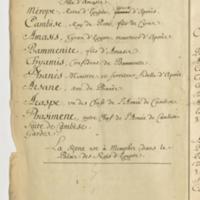 fille d'Amasis
Mérope, Reine d'Egypte, d'Apriés
Cambise, Roy de Perse, fils de Cyrus
Amasis, tiran d'Egypte, d'Apriés
Psammenite, fils d'Amasis
Chyamis, Confidente de Psammenite
Phanés, Ministre et serviteur fidelle d'Apriés
Arsane, ami de Phanés
Araspe, un des Chefs de l'Armée de Cambise
Pharnment, autre Chef de l'Armée de Cambise
Suite de Cambise
Gardes
La Scene est à Memphis dans le
Palais des Rois d'Egypte